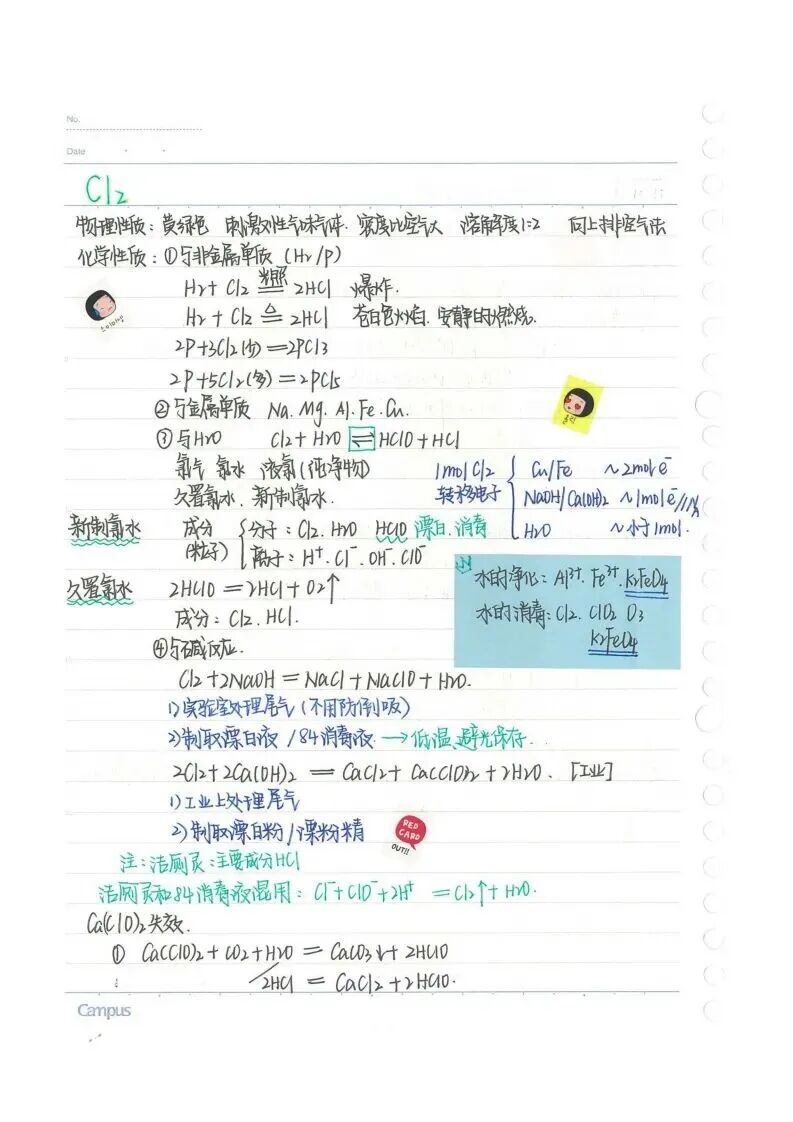 No.
Date
Cl2
物理性质：黄绿色 刺激性气味气体. 密度比空气大 溶解度1=2 向上排空气法
化学性质：①与非金属单质 (H2/P)
H2 + Cl2 光照══ 2HCl 爆炸.
H2 + Cl2 △══ 2HCl 苍白色火焰. 安静的燃烧.
2P+3Cl2(少)=2PCl3
2P+5Cl2(多)=2PCl5
②与金属单质 Na. Mg. Al. Fe. Cu.
③与H2O Cl2 + H2O ⇌ HClO + HCl
氯气 氯水 液氯(纯净物)
久置氯水. 新制氯水.
1mol Cl2 转移电子 { Cu/Fe ~2mol e⁻
NaOH/Ca(OH)2 ~1mol e⁻
H2O ~小于1mol.
新制氯水 成分(粒子) { 分子：Cl2. H2O HClO 漂白.消毒
离子：H⁺. Cl⁻. OH⁻. ClO⁻
久置氯水 2HClO = 2HCl + O2↑
成分：Cl2. HCl.
水的净化：Al³⁺. Fe³⁺. K2FeO4
水的消毒：Cl2. ClO2 O3
K2FeO4
④与碱反应.
Cl2+2NaOH = NaCl + NaClO + H2O.
1)实验室处理尾气(不用防倒吸)
2)制取漂白液 / 84消毒液. → 低温、避光保存.
2Cl2+2Ca(OH)2 = CaCl2 + Ca(ClO)2 + 2H2O. [工业]
1)工业上处理尾气
2)制取漂白粉/漂粉精
RED CARD
OUT!!
注：洁厕灵：主要成分HCl
洁厕灵和84消毒液混用：Cl⁻+ClO⁻+2H⁺ =Cl2↑+H2O.
Ca(ClO)2失效.
① Ca(ClO)2 + CO2 + H2O = CaCO3↓ + 2HClO
/2HCl = CaCl2 + 2HClO.
Campus